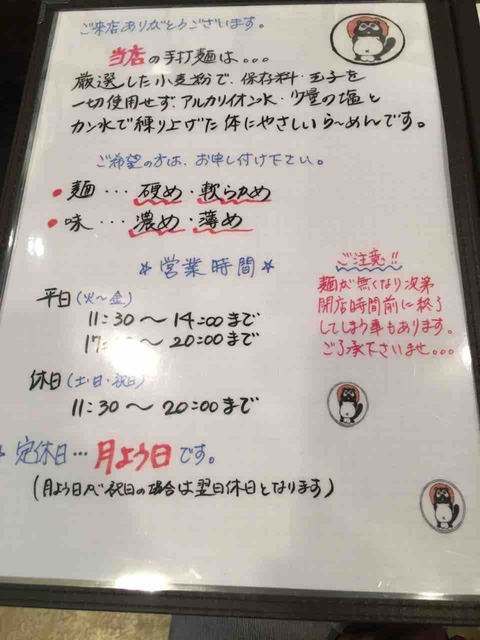 ご来店ありがとうございます。
当店の手打麺は。。。
厳選した小麦粉で、保存料・玉子を
一切使用せず、アルカリイオン水・少量の塩と
カン水で練り上げた体にやさしいら〜めんです。
ご希望の方は、お申し付け下さい。
● 麺・・・硬め・軟らかめ
● 味・・・濃め・薄め
☆ 営業時間 ☆
平日(火〜金)
11:30〜14:00まで
17:30〜20:00まで
休日(土・日・祝日)
11:30〜20:00まで
ご注意!!
麺が無くなり次第
開店時間前に終了
してしまう事もあります。
ご了承下さいませ。。。
定休日・・・月よう日です。
(月よう日が祝日の場合は翌日休日となります)